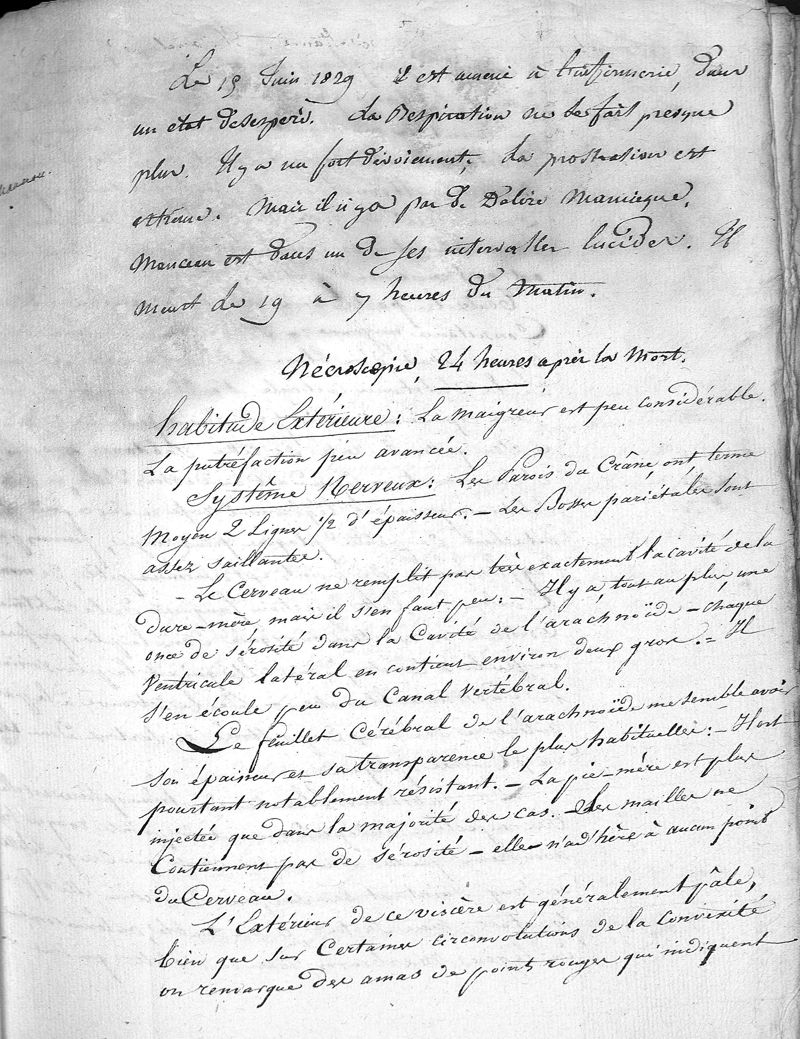 Le 15 Juin 1829 il est amené à l'infirmerie, dans
un état désespéré. La Respiration ne se fait presque
plus. Il y a un fort dévoiement, La prostration est
extrême. Mais il n'y a pas de Délire Maniaque,
Manceau est dans un de ses intervalles lucides. Il
meurt le 19 à 7 heures du Matin.
Nécroscopie, 24 heures après la Mort.
habitude Extérieure : La maigreur est peu considérable.
La putréfaction peu avancée.
Système Nerveux : Les Parois du Crâne ont terme
Moyen 2 Lignes 1/2 d'épaisseur. — Les Bosses pariétales sont
assez saillantes.
- Le Cerveau ne remplit pas très exactement la cavité de la
dure-mère mais il s'en faut peu : - Il y a tout au plus une
once de sérosité dans la Cavité de l'arachnoïde - chaque
Ventricule latéral en contient environ deux gros. - Il
s'en écoule peu du Canal Vertébral.
Le feuillet Cérébral de l'arachnoïde me semble avoir
son épaisseur et sa transparence le plus habituelles : - Il est
pourtant notablement résistant. - La pie-mère est plus
injectée que dans la majorité des cas. - Les mailles ne
Contiennent pas de sérosité - elle n'adhère à aucun point
du Cerveau.
L'Extérieur de ce viscère est généralement pâle,
bien que sur Certaines circonvolutions de la convexité
on remarque des amas de points rouges qui indiquent